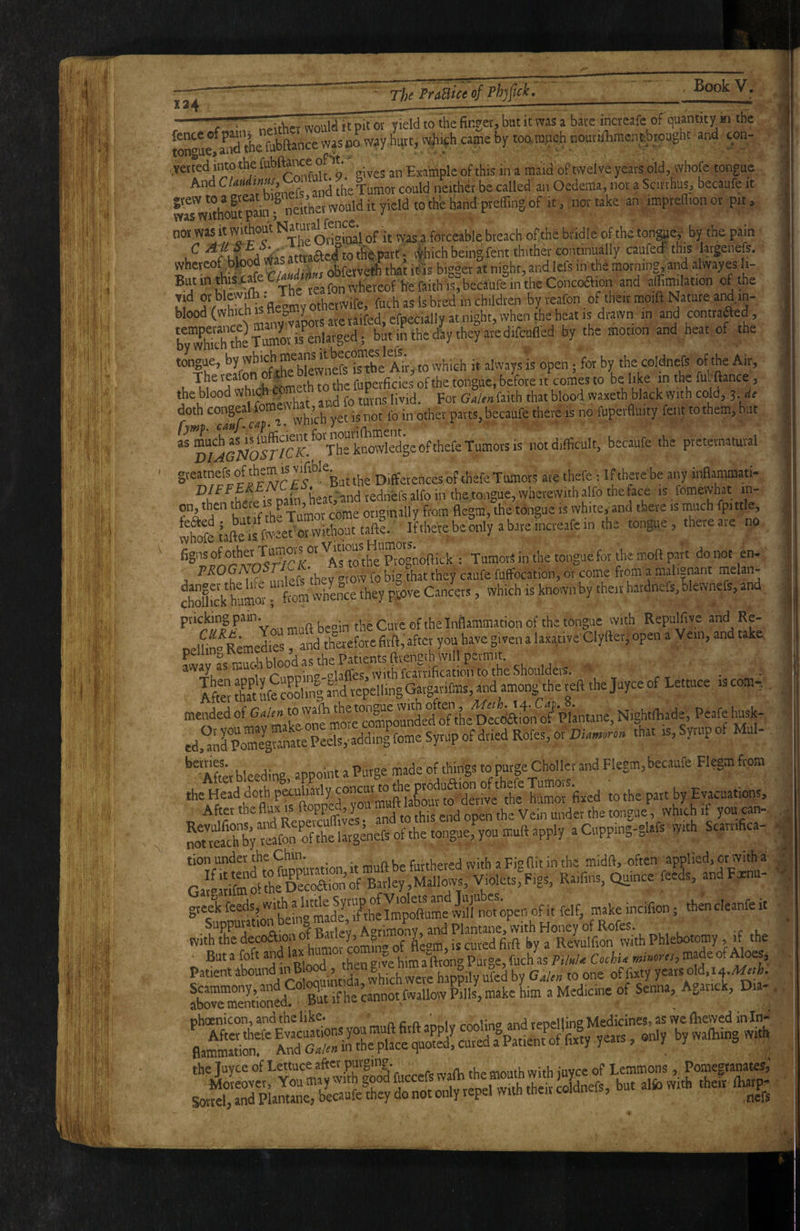 124 The Practice of Physick. Book V.
fence of pain; neither would it pit or yield to the finger, but it was a bare increase of quantity in the
tongue, and the substance was no way hurt, which came by too much nourishment brought and con-
verted into the substance of it.
And Claudinus, Consult. 9. gives an Example of this in a maid of twelve years old, whose tongue
grew to a great bigness, and the Tumor could neither be called an Oedema, nor a Scirrhus, because it
was without pain; neither would it yield to the hand pressing of it, nor take an impression or pit,
nor was it without Natural sence.
CAUSES. The Original of it was a forceable breach of the bridle of the tongue, by the pain
whereof blood was attracted to the part; which being sent thither continually caused this largeness.
But in this case Claudinus observeth that it is bigger at night, and less in the morning, and alwayes li-
vid or blewish: The reason whereof he saith is, because in the Concoction and assimilation of the
blood (which is flegmy otherwise, such as is bred in children by reason of their moist Nature and in-
temperance) many vapors are raised, especially at night, when the heat is drawn in and contracted,
by which the Tumor is enlarged; but in the day they are discussed by the motion and heat of the
tongue, by which means it becomes less.
The reason of the blewness is the Air, to which it always is open; for by the coldness of the Air,
the blood which cometh to the superficies of the tongue, before it comes to be like in the substance,
doth congeal somewhat, and so turns livid. For Galen saith that blood waxeth black with cold, 3. de
symp. caus. cap. 2. which yet is not so in other parts, because there is no superfluity sent to them, but
as much as is sufficient for nourishment.
DIAGNOSTICK. The knowledge of these Tumors is not difficult, because the preternatural
greatness of them is visible.
DIFFERENCES. But the Differences of these Tumors are these: If there be any inflammati-
on, then there is pain, heat, and redness also in the tongue, wherewith also the face is somewhat in-
fected; but if the Tumor come originally from flegm, the tongue is white, and there is much spittle,
whose taste is sweet or without taste. If there be only a bare increase in the tongue, there are no
signs of other Tumors or Vitious Humors.
PROGNOSTICK. As to the Prognostick: Tumors in the tongue for the most part do not en-
danger the life unless they grow so big that they cause suffocation, or come from a malignant melan-
chollick humor; from whence they prove Cancers, which is known by their hardness, blewness, and
pricking pain.
CURE. You must begin the Cure of the Inflammation of the tongue with Repulsive and Re-
pelling Remedies, and therefore first, after you have given a laxative Clyster, open a Vein, and take
away as much blood as the Patients strength will permit.
Then apply Cupping-glasses, with scarrification to the Shoulders.
After that use cooling and repelling Gargarisms, and among the rest the Juyce of Lettuce is com-
mended of Galen to wash the tongue with often, Meth. 14. Cap. 8.
Or you may make one more compounded of the Decoction of Plantane, Nightshade, Pease husk-
ed, and Pomegranate Peels, adding some Syrup of dried Roses, or Diamoron that is, Syrup of Mul-
berries.
After bleeding, appoint a Purge made of things to purge Choller and Flegm, because Flegm from
the Head doth peculiarly concur to the production of these Tumors.
After the flux is stopped, you must labour to derive the humor fixed to the part by Evacuations,
Revulsions, and Repercussives; and to this end open the Vein under the tongue, which if you can-
not reach by reason of the largeness of the tongue, you must apply a Cupping-glass with Scarrifica-
tion under the Chin.
If it tend to suppuration, it must be furthered with a Fig slit in the midst, often applied, or with a
Gargarism of the Decoction of Barley, Mallows, Violets, Figs, Raisins, Quince seeds, and Fœnu-
greek seeds, with a little Syrup of Violets and Jujubes.
Suppuration being made, if the Impostume will not open of it self, make incision; then cleanse it
with the decoction of Barley, Agrimony, and Plantane, with Honey of Roses.
But a soft and lax humor coming of flegm, is cured first by a Revulsion with Phlebotomy, if the
Patient abound in Blood, then give him a strong Purge, such as Pilulæ Cochiæ minores, made of Aloes,
Scammony, and Coloquintida, which were happily used by Galen to one of sixty years old, 14. Meth.
above mentioned. But if he cannot swallow Pills, make him a Medicine of Senna, Agarick, Dia-
phœnicon, and the like.
After these Evacuations you must first apply cooling and repelling Medicines, as we shewed in In-
flammation. And Galen in the place quoted, cured a Patient of sixty years, only by washing with
the Juyce of Lettuce after purging.
Moreover, You may with good success wash the mouth with juyce of Lemmons, Pomegranates,
Sorrel, and Plantane, because they do not only repel with their coldness, but also with their sharp-
ness